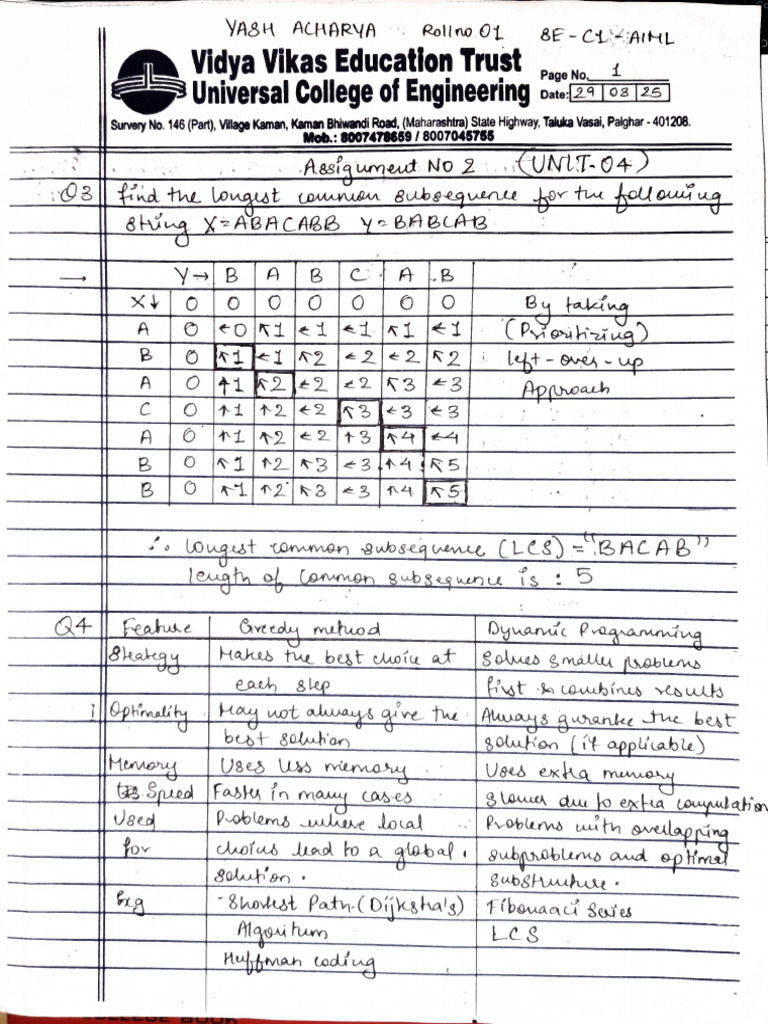 YASH ACHARYA Rollno 01 SE-C1-AIML
Vidya Vikas Education Trust
Universal College of Engineering
Page No. 1
Date: 29 03 25
Survey No. 146 (Part), Village Kaman, Kaman Bhiwandi Road, (Maharashtra) State Highway, Taluka Vasai, Palghar - 401208.
Mob.: 8007478659 / 8007045755
Assignment NO 2 (UNIT-04)
Q3 find the longest common subsequence for the following
string X=ABACABB Y=BABCAB
→ Y→ B A B C A B
X↓ 0 0 0 0 0 0 0 By taking
A 0 ←0 ↖1 ←1 ←1 ↖1 ←1 (Prioritizing)
B 0 ↖1 ←1 ↖2 ←2 ←2 ↖2 left-over-up
A 0 ↑1 ↖2 ←2 ←2 ↖3 ←3 Approach
C 0 ↑1 ↑2 ←2 ↖3 ←3 ←3
A 0 ↑1 ↖2 ←2 ↑3 ↖4 ←4
B 0 ↖1 ↑2 ↖3 ←3 ↑4 ↖5
B 0 ↖1 ↑2 ↖3 ←3 ↑4 ↖5
∴ longest common subsequence (LCS) = "BACAB"
length of common subsequence is : 5
Q4 Feature Greedy method Dynamic Programming
Strategy Makes the best choice at solves smaller problems
each step first & combines results
1 Optimality May not always give the Always gurantee the best
best solution solution (if applicable)
Memory Uses less memory Uses extra memory
Speed Faster in many cases slower due to extra computation
Used Problems where local Problems with overlapping
for choices lead to a global subproblems and optimal
solution. substructure.
Exg -Shortest Path (Dijkstra's) Fibonaaci Series
Algoritum LCS
Huffman coding